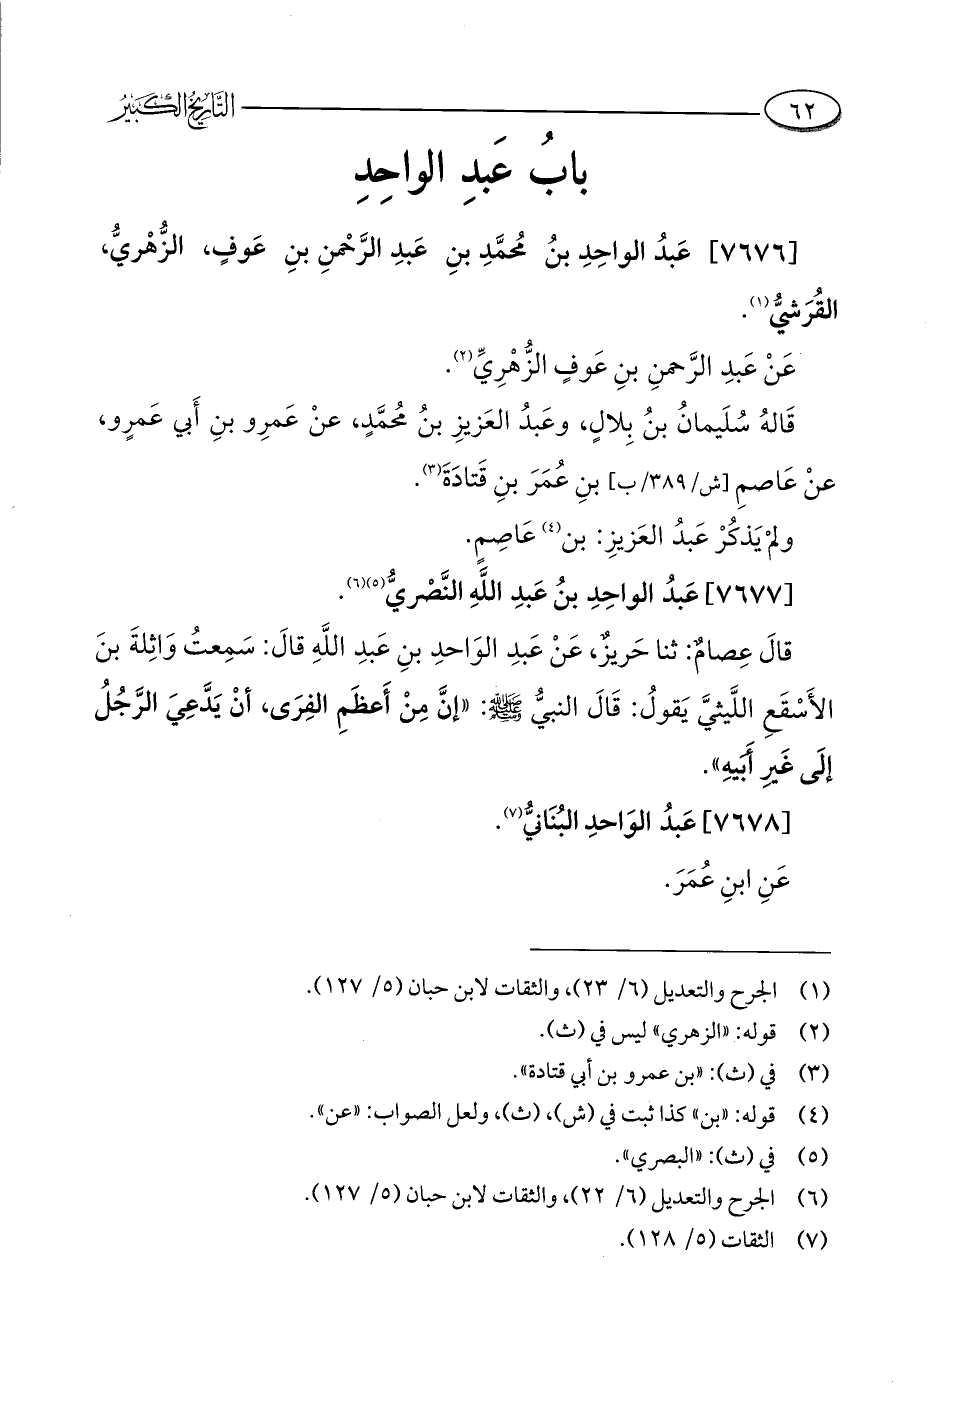 ٦٢ التاريخ الكبير
بابُ عَبدِ الواحِدِ
[٧٦٧٦] عَبدُ الواحِدِ بنُ مُحمَّدِ بنِ عَبدِ الرَّحْمنِ بنِ عَوفٍ، الزُّهْريُّ،
القُرَشيُّ(١).
عَنْ عَبدِ الرَّحمنِ بنِ عَوفٍ الزُّهْرِيِّ(٢).
قَالهُ سُلَيمانُ بنُ بِلالٍ، وعَبدُ العَزيزِ بنُ مُحمَّدٍ، عنْ عَمرِو بنِ أَبي عَمرٍو،
عنْ عَاصمِ [ش/٣٨٩/ب] بنِ عُمَرَ بنِ قَتادَةَ(٣).
ولمْ يَذكُرْ عَبدُ العَزيزِ: بن(٤) عَاصِمٍ.
[٧٦٧٧] عَبدُ الواحِدِ بنُ عَبدِ اللَّهِ النَّصْريُّ(٥)(٦).
قالَ عِصامٌ: ثنا حَريزٌ، عَنْ عَبدِ الوَاحدِ بنِ عَبدِ اللَّهِ قالَ: سَمِعتُ وَاثِلةَ بنَ
الأَسْقَعِ اللَّيثيَّ يَقولُ: قَالَ النبيُّ ﷺ: «إنَّ مِنْ أَعظَمِ الفِرَى، أنْ يَدَّعِيَ الرَّجُلُ
إلَى غَيرِ أَبَيهِ».
[٧٦٧٨] عَبدُ الوَاحدِ البُنَانيُّ(٧).
عَنِ ابنِ عُمَرَ.
(١) الجرح والتعديل (٦/ ٢٣)، والثقات لابن حبان (٥/ ١٢٧).
(٢) قوله: «الزهري» ليس في (ث).
(٣) في (ث): «بن عمرو بن أبي قتادة».
(٤) قوله: «بن» كذا ثبت في (ش)، (ث)، ولعل الصواب: «عن».
(٥) في (ث): «البصري».
(٦) الجرح والتعديل (٦/ ٢٢)، والثقات لابن حبان (٥/ ١٢٧).
(٧) الثقات (٥/ ١٢٨).